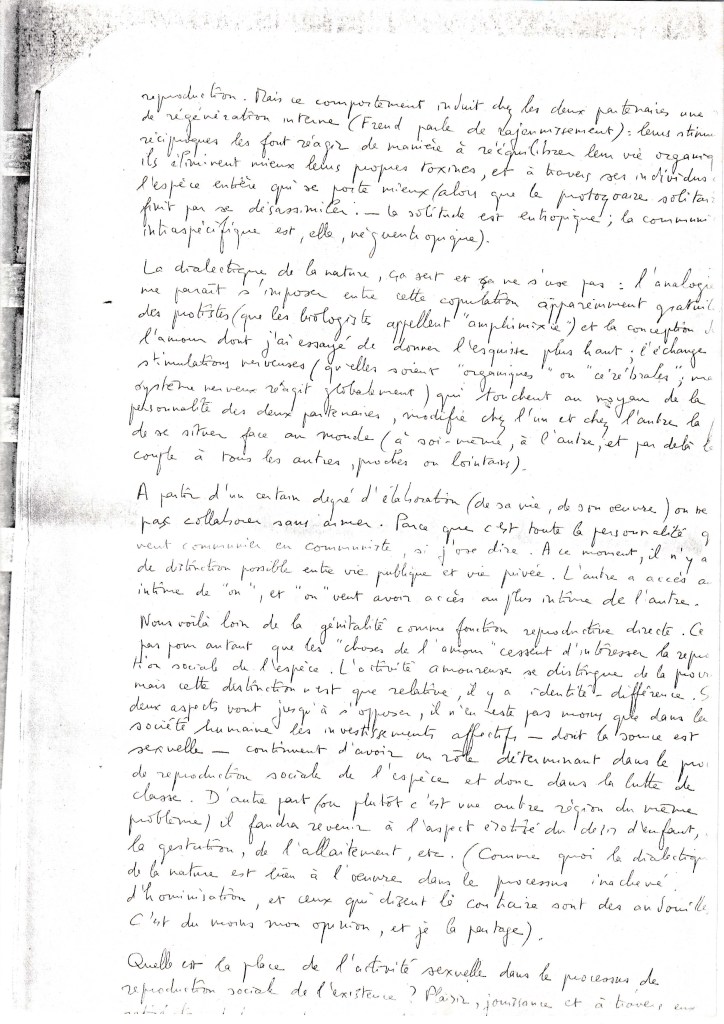 reproduction. Mais ce comportement induit chez les deux partenaires une
de régénération interne (Freud parle de rajeunissement) : leurs stimu
réciproques les font réagir de manière à rééquilibrer leur vie organiq
ils éliminent mieux leurs propres toxines, et à travers ses individus
l'espèce entière qui se porte mieux (alors que le protozoaire solitai
finit par se désassimiler. — la solitude est entropique ; la communi
intraspécifique est, elle, néguentropique).
La dialectique de la nature, ça sert et ça ne s'use pas : l'analogie
me paraît s'imposer entre cette copulation apparemment gratuit
des protistes (que les biologistes appellent "amphimixie") et la conception d
l'amour dont j'ai essayé de donner l'esquisse plus haut ; l'échange
stimulations nerveuses (qu'elles soient "organiques" ou "cérébrales" ; un
système nerveux réagit globalement) qui touchent au noyau de la
personnalité des deux partenaires, modifie chez l'un et chez l'autre la
de se situer face au monde (à soi-même, à l'autre, et par delà le
couple à tous les autres, proches ou lointains).
A partir d'un certain degré d'élaboration (de sa vie, de son œuvre) on ne
pas collaborer sans aimer. Parce que c'est toute la personnalité q
veut communier en communiste, si j'ose dire. A ce moment, il n'y a
de distinction possible entre vie publique et vie privée. L'autre a accès a
intime de "on", et "on" veut avoir accès au plus intime de l'autre.
Nous voilà loin de la génitalité comme fonction reproductive directe. Ce
pas pour autant que les "choses de l'amour" cessent d'intéresser la repr
tion sociale de l'espèce. L'activité amoureuse se distingue de la
mais cette distinction n'est que relative, il y a identité-différence. S
deux aspects vont jusqu'à s'opposer, il n'en reste pas moins que dans la
société humaine les investissements affectifs — dont la source est
sexuelle — continuent d'avoir un rôle déterminant dans le pro
de reproduction sociale de l'espèce et donc dans la lutte de
classe. D'autre part (ou plutôt c'est une autre région du même
problème) il faudra revenir à l'aspect érotisé du désir d'enfant,
la gestation, de l'allaitement, etc. (Comme quoi la dialectiq
de la nature est bien à l'œuvre dans le processus inachevé
d'hominisation, et ceux qui disent le contraire sont des andouille
C'est du moins mon opinion, et je la partage).
Quelle est la place de l'activité sexuelle dans le processus de
reproduction sociale de l'existence ? Plaisir, jouissance et à travers eux